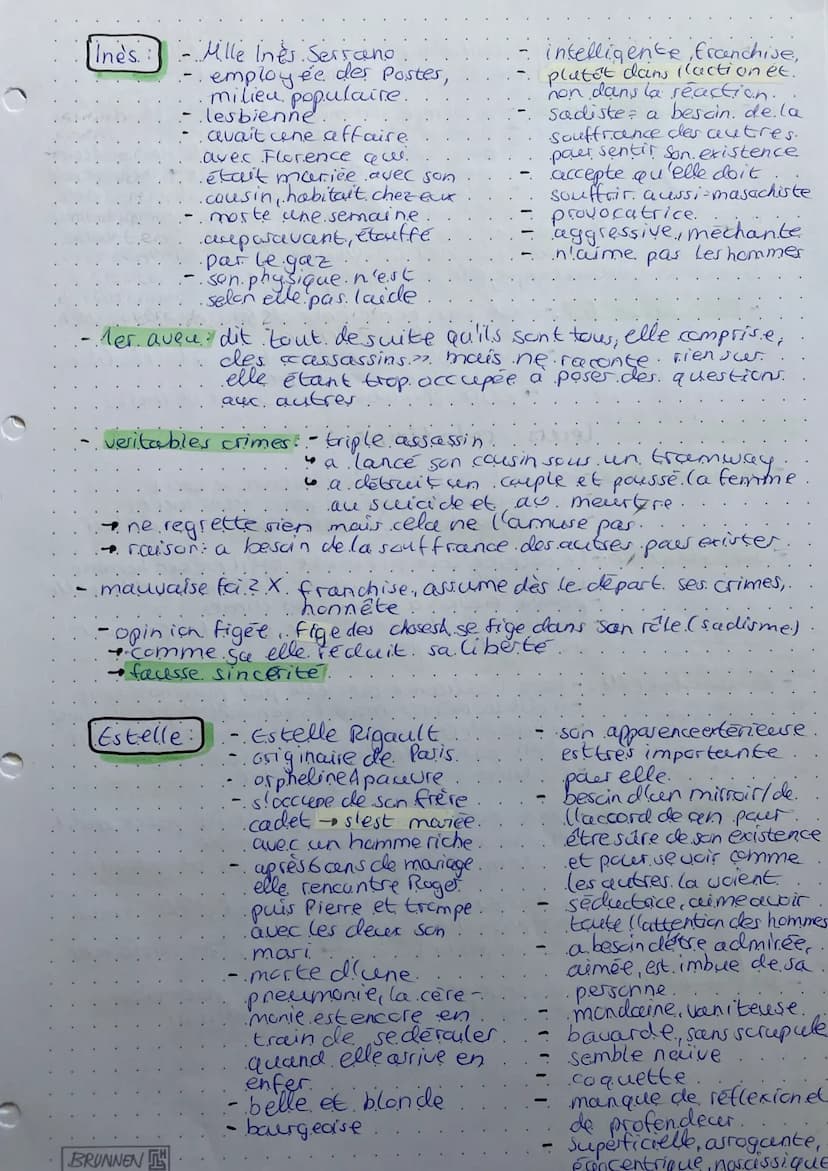 Inès :
- Mlle Inès Serrano
- employée des Postes,
milieu populaire
- lesbienne
- avait une affaire
avec Florence qui
était mariée avec son
cousin, habitait chez eux
- morte une semaine
auparavant, étouffé
par le gaz
- son physique n'est
selon elle pas laide
- intelligente, franchise,
plutôt dans l'action et
non dans la réaction
- sadiste = a besoin de la
souffrance des autres
pour sentir son existence
- accepte qu'elle doit
souffrir aussi = masachiste
- provocatrice
- aggressive, méchante
- n'aime pas les hommes
- 1er aveu : dit tout de suite qu'ils sont tous, elle comprise,
des «assassins» mais ne raconte rien sur
elle étant trop occupée à poser des questions
aux autres
- veritables crimes : - triple assassin
↳ a lancé son cousin sous un tramway
↳ a détruit un couple et poussé la femme
au suicide et au meurtre
→ ne regrette rien mais cela ne l'amuse pas
→ raison : a besoin de la souffrance des autres pour exister
- mauvaise foi ? X franchise, assume dès le départ ses crimes,
honnête
- opinion figée, fige des choses, se fige dans son rôle (sadisme)
→ comme ça elle réduit sa liberté
→ fausse sincérité
Estelle :
- Estelle Rigault
- originaire de Paris
- orpheline, pauvre
- s'occupe de son frère
cadet → s'est mariée
avec un homme riche
- après 6 ans de mariage
elle rencontre Roger
puis Pierre et trompe
avec les deux son
mari
- morte d'une
pneumonie, la céré-
monie est encore en
train de se dérouler
quand elle arrive en
enfer
- belle et blonde
- bourgeoise
- son apparence extérieure
est très importante
pour elle
- besoin d'un mirroir / de
l'accord de qn pour
être sûre de son existence
et pour se voir comme
les autres la voient
- séductrice, aime avoir
toute l'attention des hommes
- a besoin d'être admirée,
aimée, est imbue de sa
personne
- mondaine, vaniteuse
- bavarde, sans scrupule
- semble naïve
- coquette
- manque de réflexion et
de profondeur
- superficielle, arrogante,
narcissique
BRUNNEN